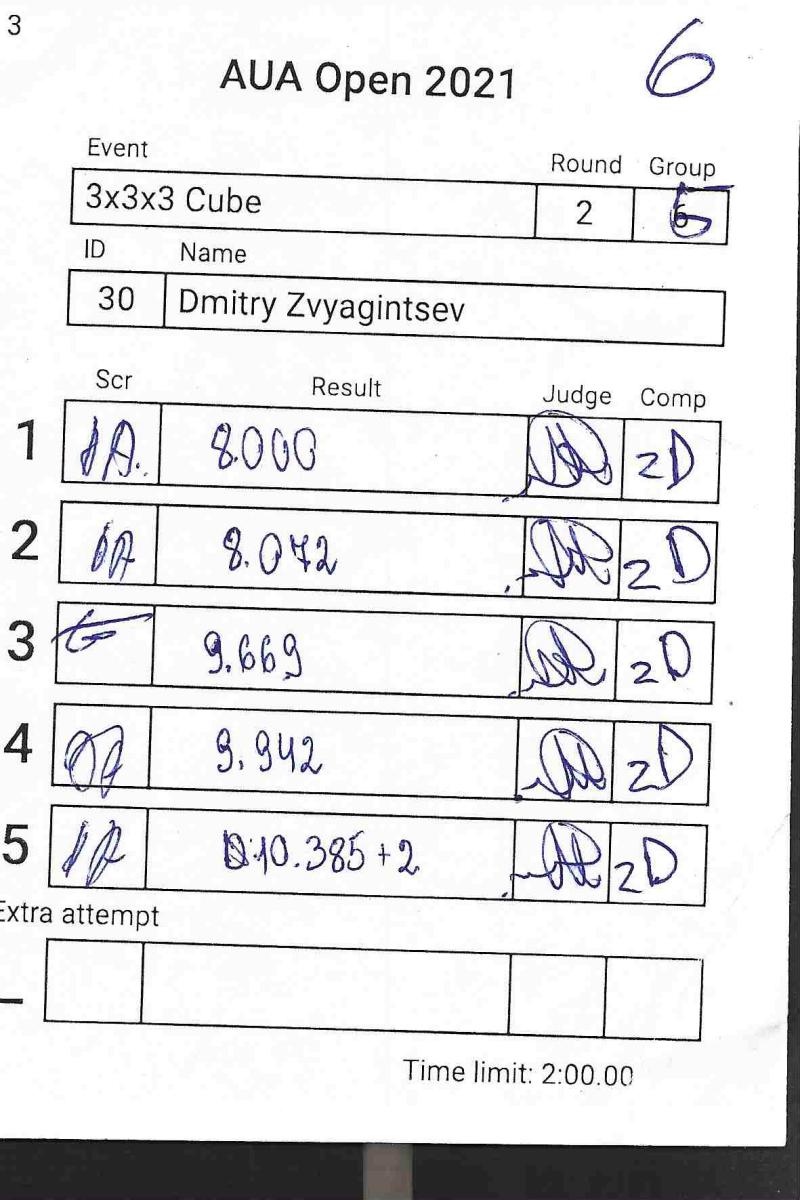 3
AUA Open 2021
6
Event Round Group
3x3x3 Cube 2 6
ID Name
30 Dmitry Zvyagintsev
Scr Result Judge Comp
1 8.000 ZD
2 8.072 ZD
3 9.669 ZD
4 9.942 ZD
5 10.385 +2 ZD
Extra attempt
_
Time limit: 2:00.00